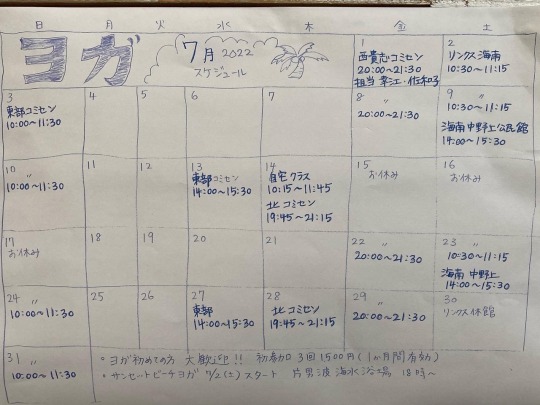 日 月 火 水 木 金 土
ヨガ
7月 2022
スケジュール
1
西貴志コミセン
20:00~21:30
担当 幸江・佐和子
2
リンクス海南
10:30~11:15
3
東部コミセン
10:00~11:30
4
5
6
7
8 〃
20:00~21:30
9 〃
10:30~11:15
海南中野上公民館
14:00~15:30
10 〃
10:00~11:30
11
12
13
東部コミセン
14:00~15:30
14
自宅クラス
10:15~11:45
北コミセン
19:45~21:15
15
お休み
16
お休み
17
お休み
18
19
20
21
22 〃
20:00~21:30
23 〃
10:30~11:15
海南中野上
14:00~15:30
24 〃
10:00~11:30
25
26
27
東部
14:00~15:30
28
北コミセン
19:45~21:15
29 〃
20:00~21:30
30
リンクス休館
31 〃
10:00~11:30
・ヨガ初めての方 大歓迎!! 初参加 3回1,500円(1か月間有効)
・サンセットビーチヨガ 7/2(土)スタート 片男波海水浴場 18時~